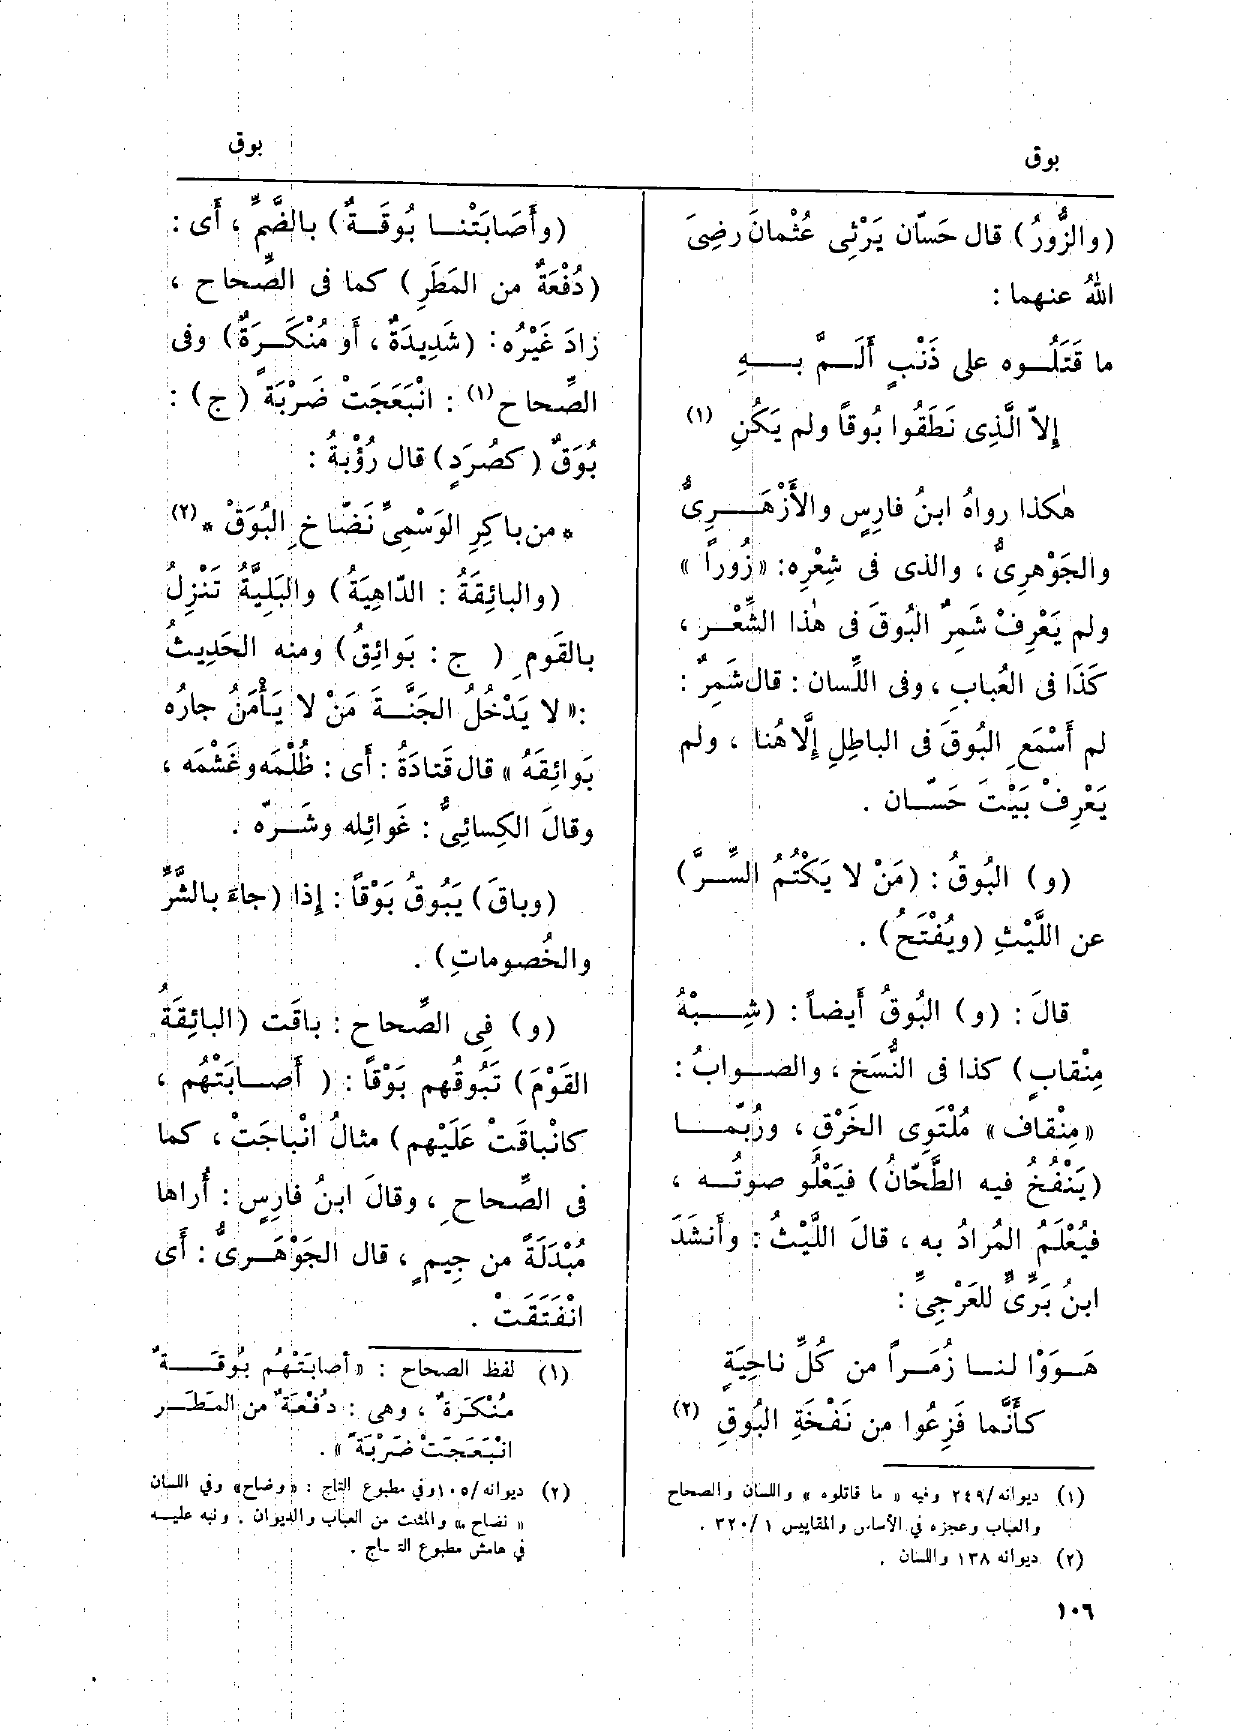 بوق
بوق
(والزُّورُ) قال حَسّان يَرْثِى عُثْمانَ رضِىَ
اللهُ عنهما :
ما قَتَلُــوه على ذَنْبٍ أَلَــمَّ بــــهِ
إِلاّ الَّذِى نَطَقُوا بُوقاً ولم يَكُنِ (١)
هٰكذا رواهُ ابنُ فارِسٍ والأَزْهَــــرِىُّ
والجَوْهرِىُّ ، والذى فى شِعْرِه: «زُوراً»
ولم يَعْرِفْ شَمِرٌ البُوقَ فى هٰذا الشِّعْــر ،
كَذَا فى العُبابِ ، وفى اللِّسان : قال شَمِرٌ :
لم أَسْمَعِ البُوقَ فى الباطِلِ إِلَّا هُنا ، ولم
يَعْرِفْ بَيْتَ حَسّــان .
(و) البُوقُ : (مَنْ لا يَكْتُمُ السِّــرَّ)
عن اللَّيْثِ (ويُفْتَحُ) .
قالَ : (و) البُوقُ أَيضاً : (شِــــبْهُ
مِنْقابٍ) كذا فى النُّسَخ ، والصــوابُ :
«مِنْقاف» مُلْتَوِى الخَرْقِ ، ورُبَّمــــا
(يَنْفُخُ فيه الطَّحّانُ) فيَعْلُو صوتُــه ،
فيُعْلَمُ المُرادُ به ، قالَ اللَّيْثُ : وأَنشَدَ
ابنُ بَرِّىٍّ للعَرْجِىِّ :
هَــوَوْا لنــا زُمَــراً من كُلِّ ناحِيَةٍ
كأَنَّما فَزِعُوا من نَفْخَةِ البُوقِ (٢)
(١) ديوانه/٢٤٩ وفيه « ما قاتلوه » واللسان والصحاح
والعباب وعجزه في الأساس والمقاييس ١ /٣٢٠ .
(٢) ديوانه ١٣٨ واللسان .
١٠٦
(وأَصَابَتْنــا بُوقَــةٌ) بالضَّمِّ ، أَى :
(دُفْعَةٌ من المَطَرِ) كما فى الصِّحاح ،
زادَ غَيْرُه: (شَدِيدَةٌ ، أَو مُنْكَــرَةٌ) وفى
الصِّحاح(١) : انْبَعَجَتْ ضَرْبَةً (ج) :
بُوَقٌ (كصُرَدٍ) قال رُؤْبةُ :
* من باكِرِ الوَسْمِىِّ نَضّاخِ البُوَقْ * (٢)
(والبائِقَةُ : الدّاهِيَةُ) والبَلِيَّةُ تَنْزِلُ
بالقَومِ (ج : بَوائِقُ) ومنه الحَدِيثُ
:« لا يَدْخُلُ الجَنَّــةَ مَنْ لا يَأْمَنُ جارُه
بَوائِقَهُ » قال قَتادَةُ : أَى : ظُلْمَه وغَشْمَه ،
وقالَ الكِسائِىُّ : غَوائِله وشَــرّه .
(وباقَ) يَبُوقُ بَوْقاً : إِذا (جاءَ بالشَّرِّ
والخُصوماتِ) .
(و) فِى الصِّحاح : باقَت (البائِقَةُ
القَوْمَ) تَبُوقُهم بَوْقاً : ( أَصــابَتْهُم ،
كانْباقَتْ عَلَيْهم) مثالُ انْباجَتْ ، كما
فى الصِّحاحِ ، وقالَ ابنُ فارِسٍ : أُراها
مُبْدَلَةً من جِيمٍ ، قال الجَوْهَــرِىُّ : أَى
انْفَتَقَتْ .
(١) لفظ الصحاح : « أصابَتْهُم بُوقَــــةٌ
مُنْكَرَةٌ ، وهى : دُفْعَةٌ من المَطَــر
انْبَعَجَتْ ضَرْبَةً » .
(٢) ديوانه/١٠٥ وفي مطبوع التاج : «وضاح» وفي اللسان
« نضاح » والمثبت من العباب والديوان . ونبه عليــه
في هامش مطبوع التـاج .